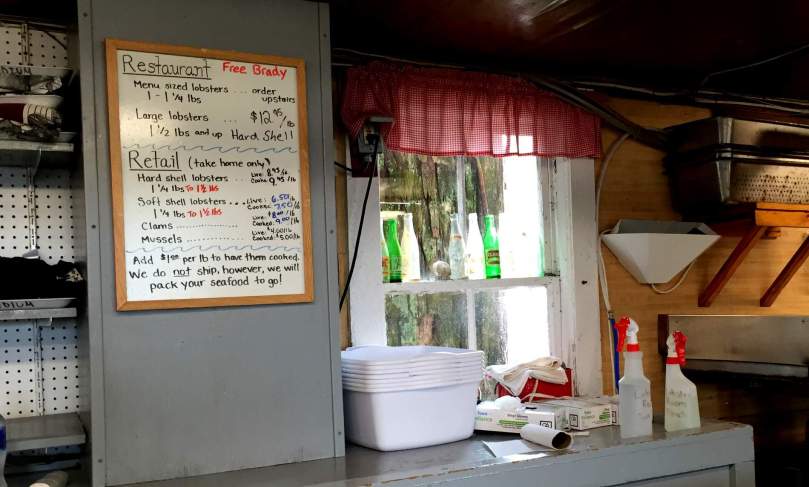 Restaurant Free Brady
Menu sized lobsters ... order
1 - 1 1/4 lbs upstairs
Large lobsters .... $12.95/lb
1 1/2 lbs and up Hard Shell
Retail (take home only)
Hard shell lobsters .... Live: 8.95/lb
1 1/4 lbs to 1 1/2 lbs Cooked: 9.95/lb
Soft shell lobsters ... Live: 6.50/lb
1 1/4 lbs to 1 1/2 lbs Cooked: 7.50/lb
Clams ................ Live: $8.00/lb
Cooked: 9.00/lb
Mussels ............... Live: $4.00/lb
Cooked: $5.00/lb
Add $1.00 per lb to have them cooked.
We do not ship, however, we will
pack your seafood to go!